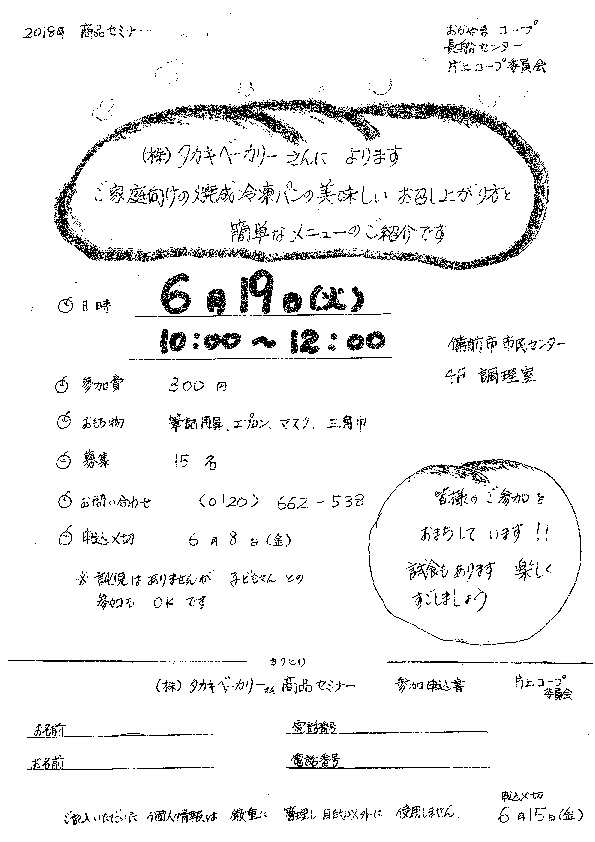 2018年 商品セミナー
おかやま コープ
長船センター
片上コープ委員会
(株)タカキベーカリーさんに よります
ご家庭向けの焼成冷凍パンの美味しい お召し上がり方と
簡単なメニューのご紹介です
日時 6月19日(火)
10:00〜12:00
備前市市民センター
4F 調理室
参加費 300円
お持ち物 筆記用具、エプロン、マスク、三角巾
募集 15名
お問い合わせ (0120) 662-538
申込〆切 6月8日(金)
皆様のご参加を
おまちして います!!
試食もあります 楽しく
すごしましょう
※託児はありませんが 子どもさん との
参加も OK です
きりとり
(株)タカキベーカリーさん 商品セミナー 参加申込書 片上コープ
委員会
お名前 電話番号
お名前 電話番号
ご記入いただいた 個人情報は 厳重に 管理し 目的以外に 使用しません.
申込〆切
6月15日(金)